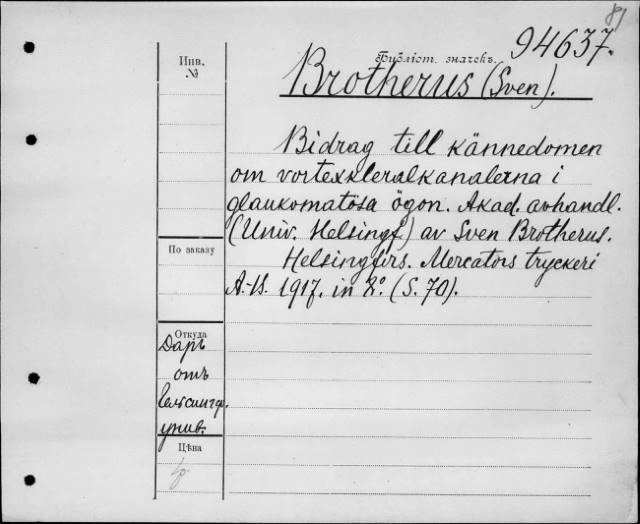 81
94637.
Инв.
№
Библіот. значекъ.
Brotherus (Sven).
Bidrag till kännedomen
om vortexskleralkanalerna i
glaukomatösa ögon. Akad. avhandl.
(Univ. Helsingf.) av Sven Brotherus.
По заказу
Helsingfors. Mercators tryckeri
A.-B. 1917. in 8º. (S. 70).
Откуда
Даръ
отъ
Гельсингф.
унив.
Цѣна